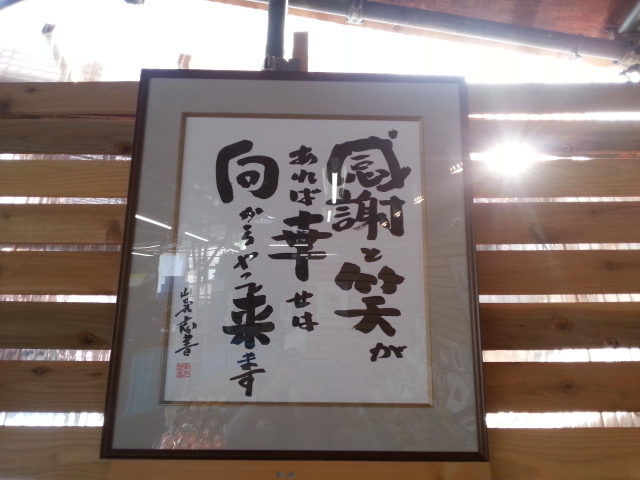 感謝と笑が
あれば幸せは
向からやって来ます